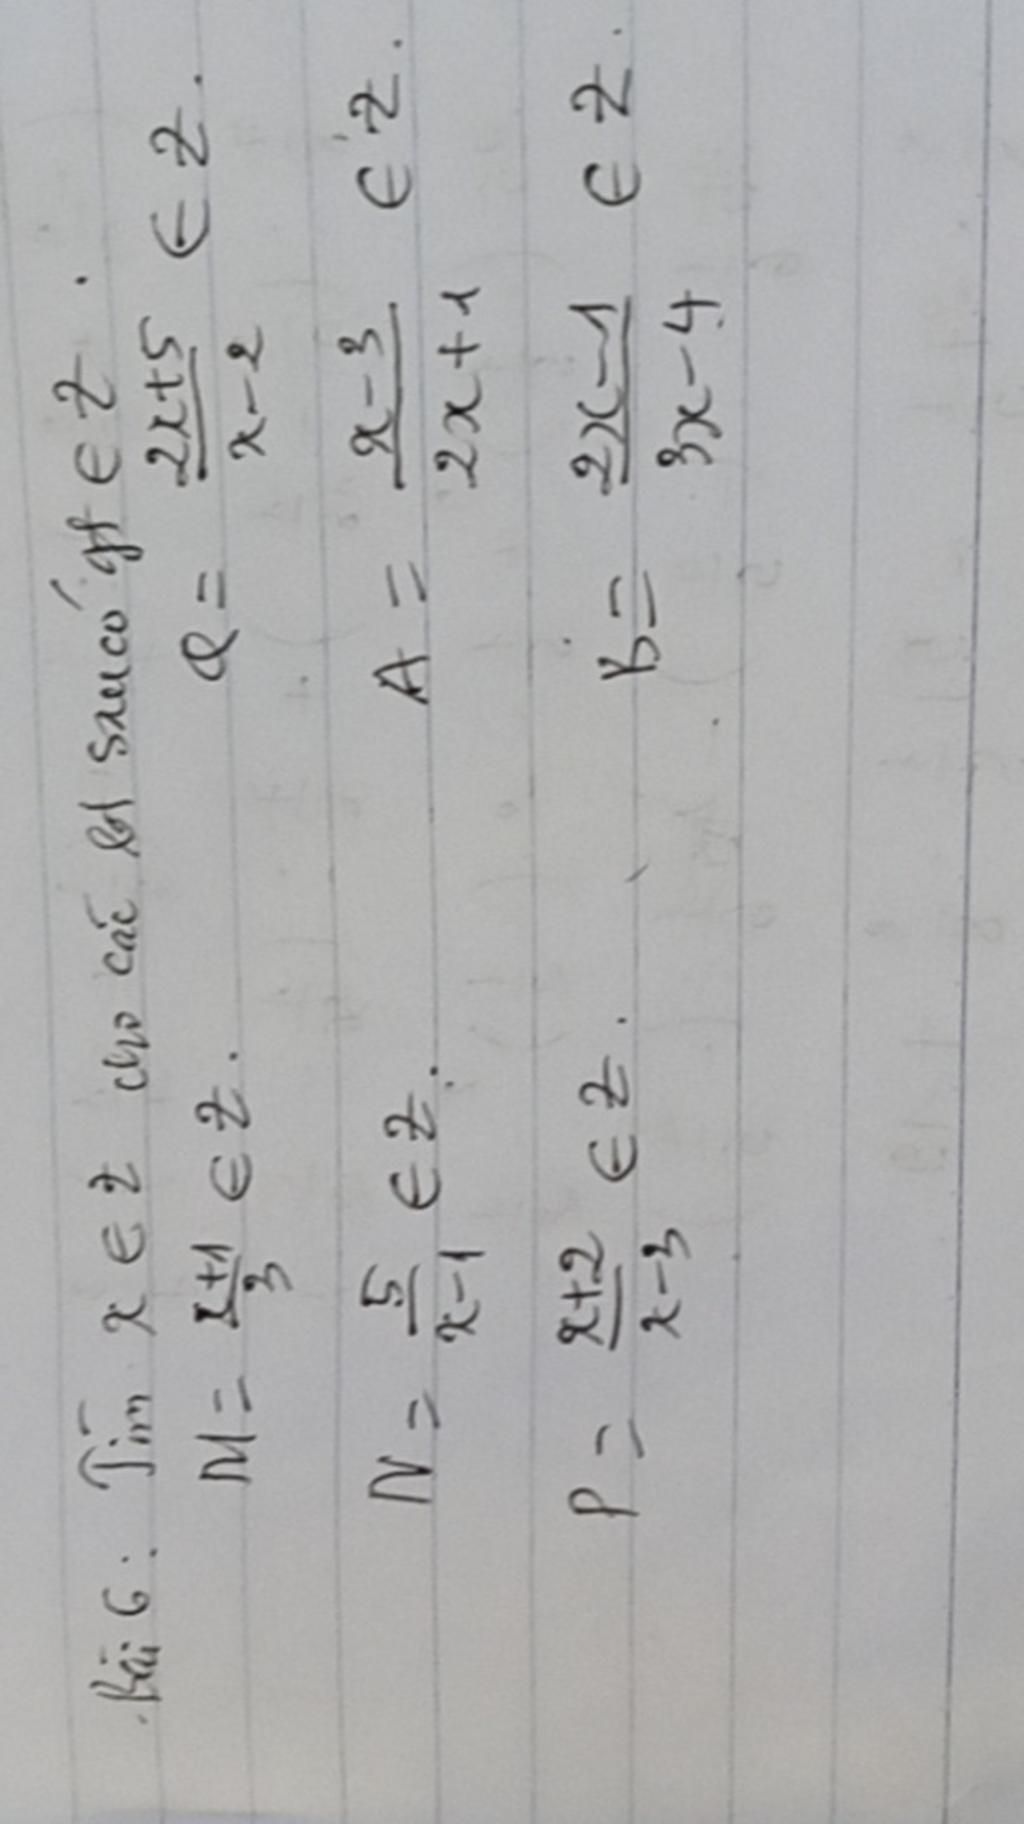 Bài 6: Tìm x ∈ Z cho các bt sau có gt ∈ Z.
M = x+1/3 ∈ Z. Q = 2x+5/x-2 ∈ Z.
N = 5/x-1 ∈ Z. A = x-3/2x+1 ∈ Z.
P = x+2/x-3 ∈ Z. B = 2x-1/3x-4 ∈ Z.